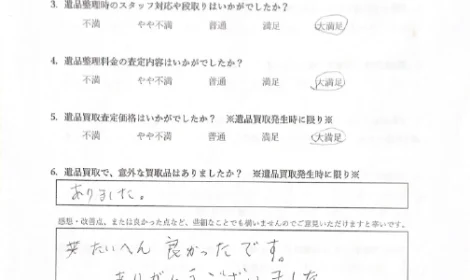 3. 遺品整理時のスタッフ対応や段取りはいかがでしたか？
不満 やや不満 普通 満足 大満足
4. 遺品整理料金の査定内容はいかがでしたか？
不満 やや不満 普通 満足 大満足
5. 遺品買取査定価格はいかがでしたか？ ※遺品買取発生時に限り※
不満 やや不満 普通 満足 大満足
6. 遺品買取で、意外な買取品はありましたか？ ※遺品買取発生時に限り※
ありました。
感想・改善点、または良かった点など、些細なことでも構いませんのでご意見いただけますと幸いです。
たいへん 良かったです。
ありがとうございました